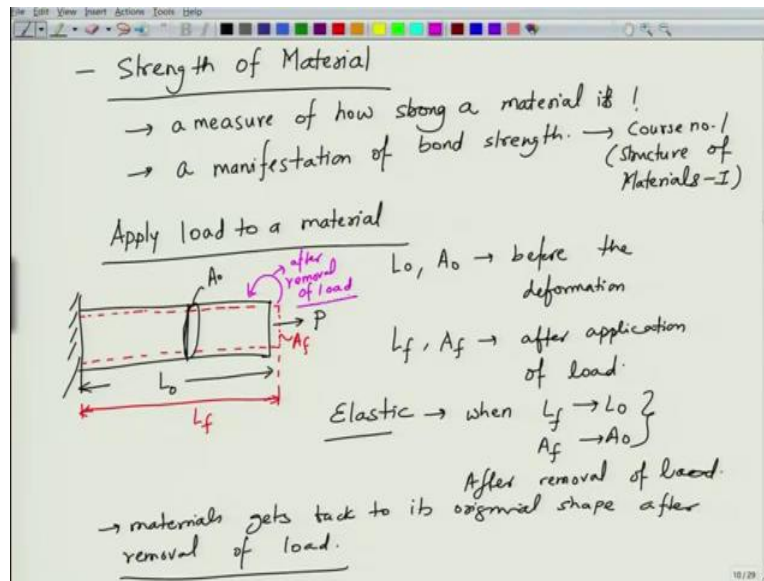 File Edit View Insert Actions Tools Help
B I
- Strength of Material
→ a measure of how strong a material is !
→ a manifestation of bond strength. → Course no. 1
(Structure of
Materials-I)
Apply load to a material
after
removal
of load
A₀
P
A_f
L₀
L_f
L₀, A₀ → before the
deformation
L_f, A_f → after application
of load.
Elastic → when L_f → L₀ }
A_f → A₀ }
After removal of load.
→ materials gets back to its original shape after
removal of load.
10/29